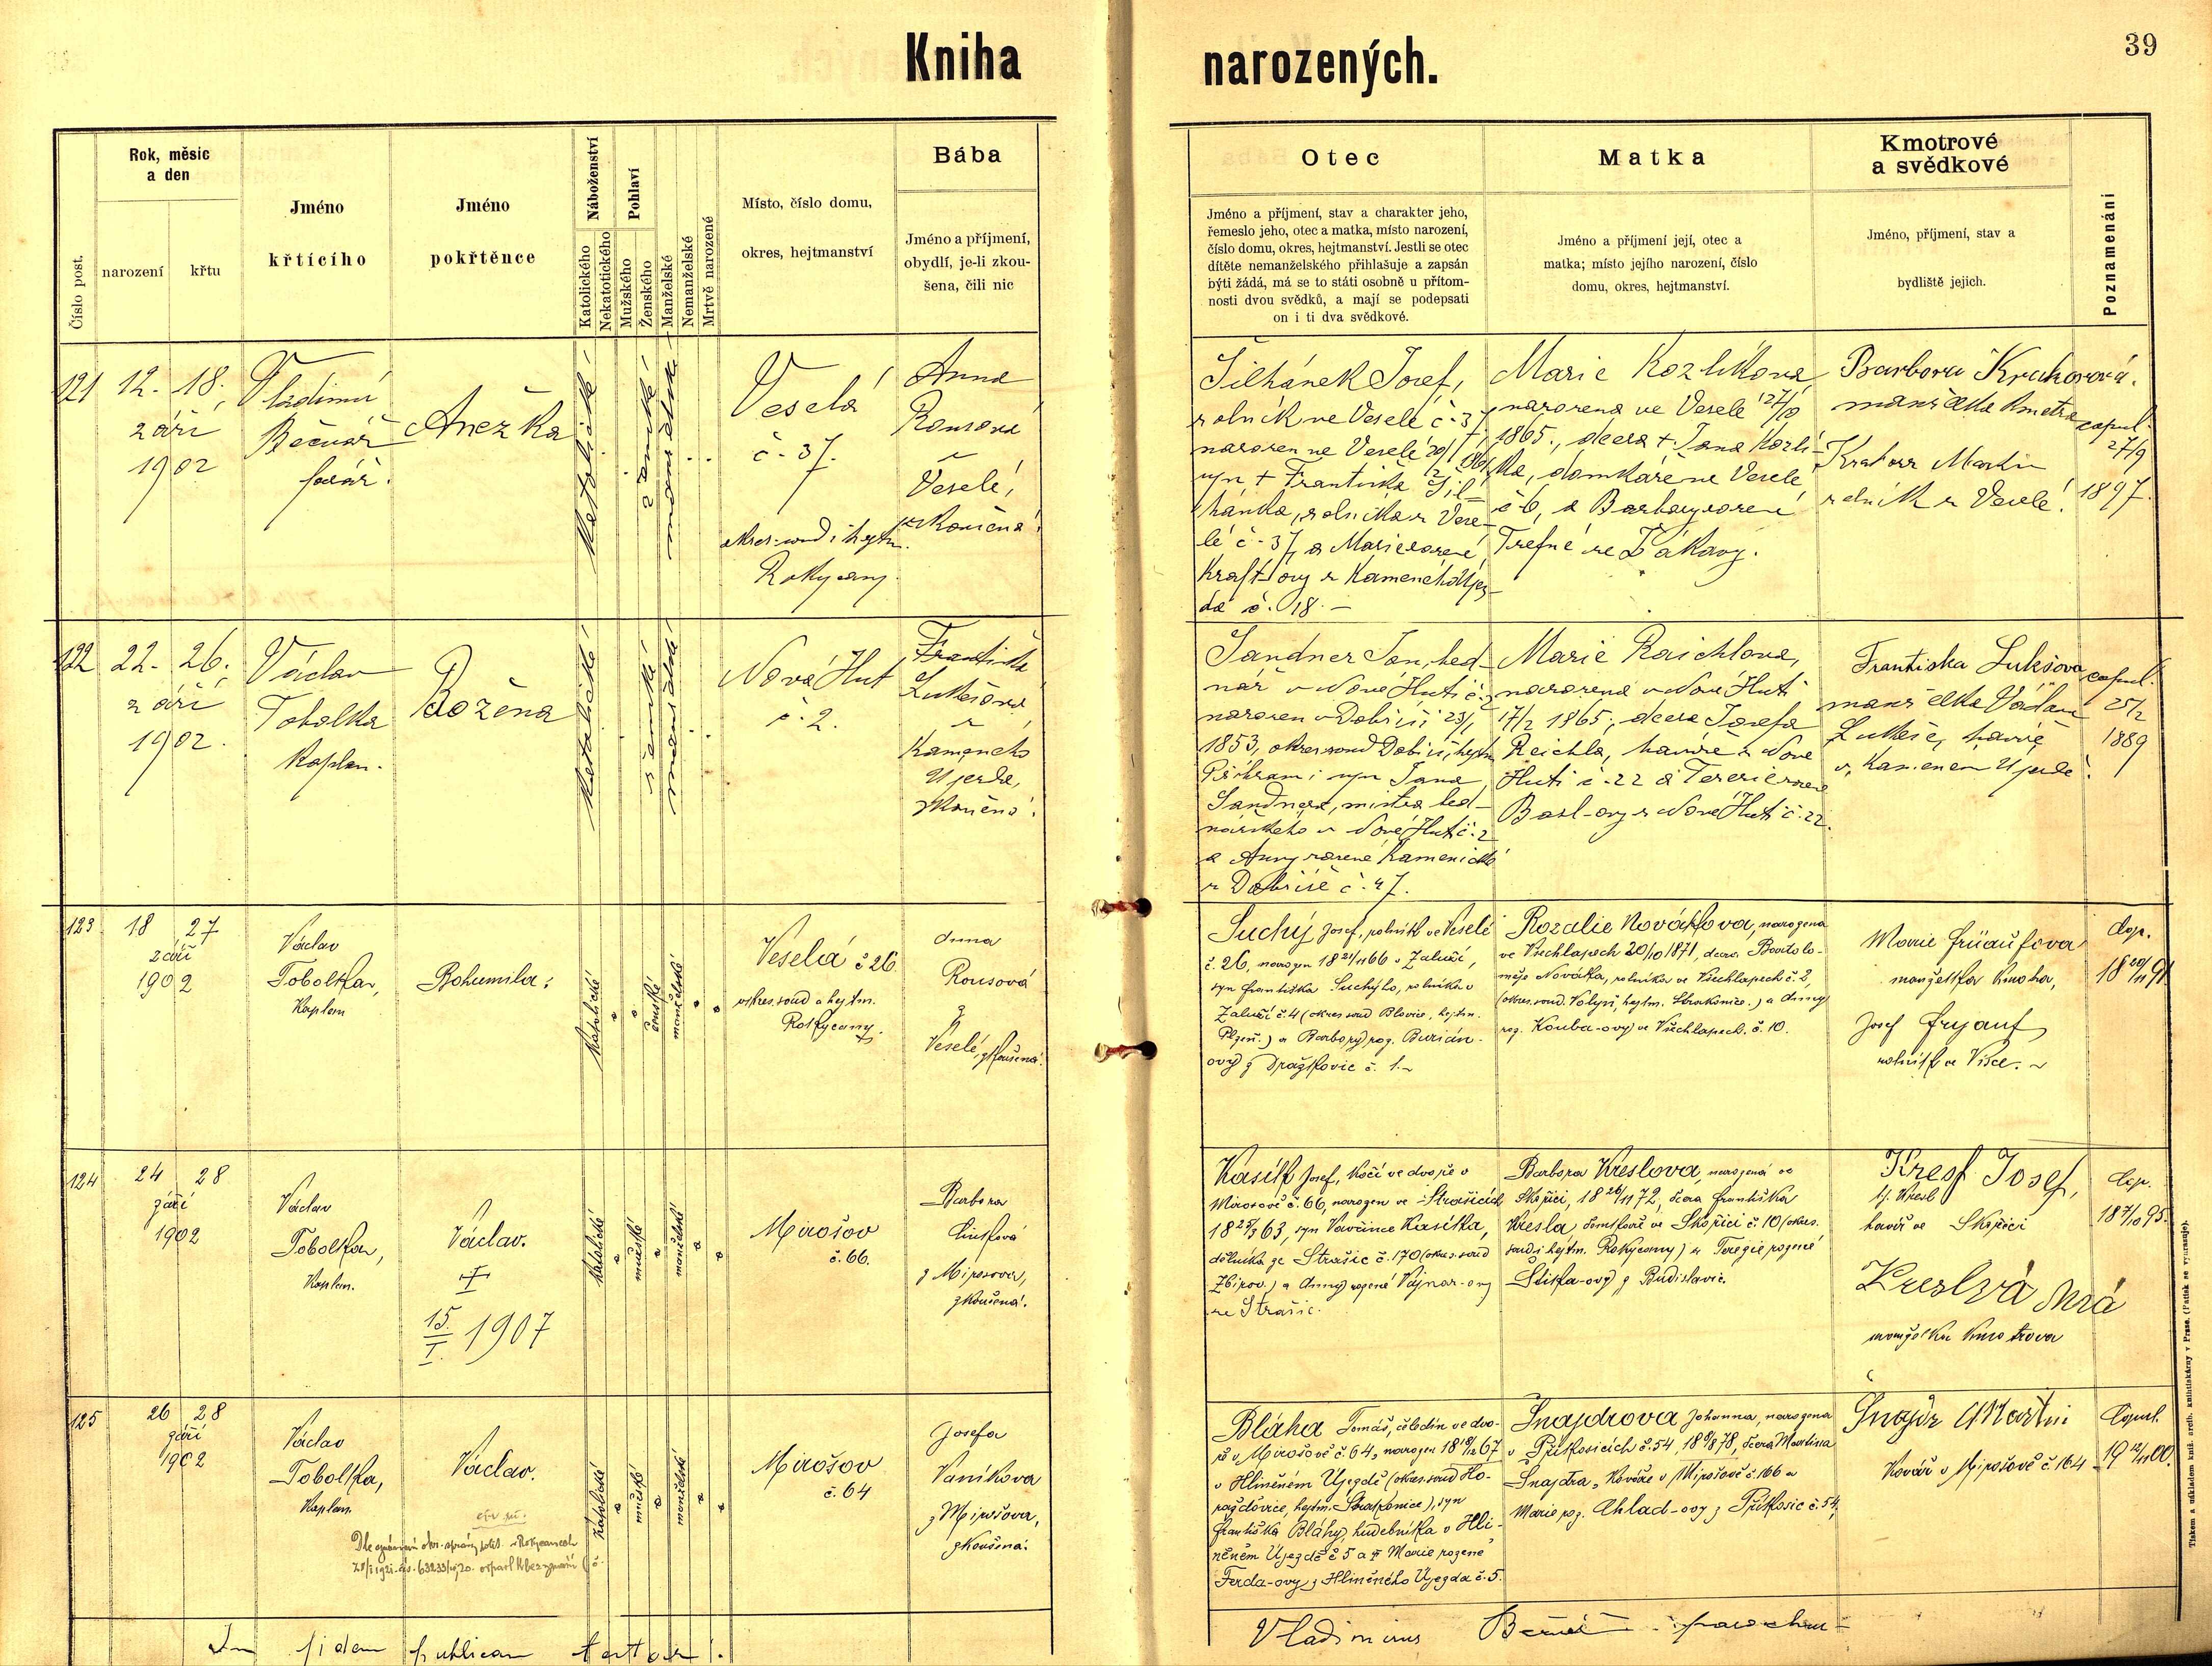 Kniha
narozených.
39
Číslo post.
Rok, měsíc
a den
narození
křtu
Jméno
křtícího
Jméno
pokřtěnce
Náboženství
Katolického
Nekatolického
Pohlaví
Mužského
Ženského
Manželské
Nemanželské
Mrtvě narozené
Místo, číslo domu,
okres, hejtmanství
Bába
Jméno a příjmení,
obydlí, je-li zkou-
šena, čili nic
Otec
Jméno a příjmení, stav a charakter jeho,
řemeslo jeho, otec a matka, místo narození,
číslo domu, okres, hejtmanství. Jestli se otec
dítěte nemanželského přihlašuje a zapsán
býti žádá, má se to státi osobně u přítom-
nosti dvou svědků, a mají se podepsati
on i ti dva svědkové.
Matka
Jméno a příjmení její, otec a
matka; místo jejího narození, číslo
domu, okres, hejtmanství.
Kmotrové
a svědkové
Jméno, příjmení, stav a
bydliště jejich.
Poznamenání
121
12. 18.
září
1902
Vladimír
Bečvář
farář.
Anežka
katolické
ženské
manželské
Veselá
č. 37.
okres. soud i hejtm.
Rokycany.
Anna
Rousová
z
Veselé,
zkoušená.
Šilhánek Josef,
rolník ve Veselé č. 37,
narozen ve Veselé
syn + Františka Šil-
hánka, rolníka z Vese-
lé č. 37, a Marie rozené
Kraft-ovy z Kameného Újez-
da č. 18.
Marie Kozlíkova,
narozena ve Veselé
1865., dcera + Jana Kozlí-
ka, domkáře ve Veselé
č. 6, a Barbory rozené
Trefné ze Žákavy.
Barbora Krahorová.
manželka kmotra
Krahorr Martin
rolník z Veselé.
copul.
27/9
1897.
122
22. 26.
září
1902.
Václav
Tobolka
kaplan.
Božena
katolické
ženské
manželské
Nová Huť
č. 2.
Františka
Lukešová
z
Kameného
Újezda,
zkoušená.
Sandner Jan, bed-
nář v Nové Huti č. 2
narozen v Dobříši 23/1
1853, okres. soud Dobříš, hejtm.
Příbram; syn Jana
Sandnera, mistra bed-
nářského v Nové Huti č. 2
a Anny rozené Kamenické
z Dobříše č. 47.
Marie Raichlova,
narozena v Nové Huti
17/2 1865., dcera Josefa
Reichla, havíře z Nové
Huti č. 22 a Terezie rozené
Basl-ovy z Nové Huti č. 22.
Frantiska Lukšova
manželka Václava
Lukeše, havíře
v Kamenem Újezdě.
copul.
25/2
1889
123
18 27
září
1902
Václav
Tobolka,
kaplan
Bohumila.
katolické
ženské
manželské
Veselá č 26
okres. soud a hejtm.
Rokycany.
Anna
Rousová
z
Veselé, zkoušená.
Suchý Josef, rolník ve Veselé
č. 26, narozen 18 21/11 66 v Záluží,
syn Františka Suchýho, rolníka v
Záluží č. 4 (okres soud Blovice, hejtm.
Plzeň.) a Barbory roz. Burián-
ovy z Dražkovic č. 1.
Rozalie Novákova, narozena
ve Všechlapech 20/10 1871, dcera Bartolo-
měje Nováka, rolníka ve Všechlapech č. 2,
(okres. soud. Volyň, hejtm. Strakonice.) a Anny
roz. Kouba-ovy ve Všechlapech. č. 10.
Marie
manželka kmotra,
Josef
rolník ve Vísce.
Cop.
124
24 28
září
1902
Václav
Tobolka,
kaplan.
Václav.
15./I. 1907
katolické
mužské
manželské
Mirošov
č. 66.
Barbora
z Mirošova,
zkoušená.
Kasík Josef, kočí ve dvoře v
Mirošově č. 66, narozen ve Strašicích
18 23/3 63, syn Vavřince Kasíka,
dělníka ze Strašic č. 170 (okres. soud
Zbirov) a Anny rozené Vajnar-ovy
ze Strašic.
Barbora Kreslova, narozená ve
Skořici, 18 26/11 72, dcera Františka
Kresla domkáře ve Skořici č. 10 (okres.
soud i hejtm. Rokycany) a Terezie rozené
Liška-ovy z Budislavic.
Kresl Josef,
tj. Kresl
havíř ve Skořici
manželka kmotrova
Cop.
125
26 28
září
1902
Václav
Tobolka,
kaplan
Václav.
katolické
mužské
manželské
Mirošov
č. 64
Josefa
Vaníkova
z Mirošova,
zkoušená.
Bláha Tomáš, čeledín ve dvo-
ře v Mirošově č. 64, narozen
v Hliněném Újezdě (okres. soud Ho-
ražďovice, hejtm. Strakonice), syn
Františka Bláhy, hudebníka v Hli-
něném Újezdě č 5 a Marie rozené
Ferda-ovy z Hliněného Újezda č. 5.
Šnajdrova Johanna, narozena
v Příkosicích č. 54, dcera Martina
Šnajdra, kováře v Mirošově č. 166 a
Marie roz. Chlad-ovy z Příkosic č. 54,
Šnajdr Martin
Kovář v Mirošově č. 164
Copul.
In fidem publicam
Vladimirus Bečvář parochus